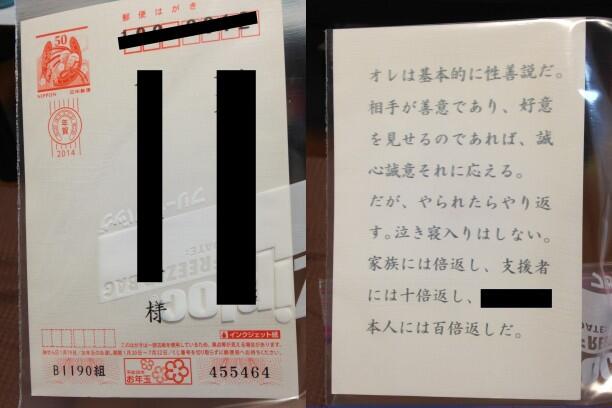 郵便はがき
50
NIPPON
日本郵便
年賀
2014
様
インクジェット紙
B1190組
お年玉
455464
オレは基本的に性善説だ。
相手が善意であり、好意
を見せるのであれば、誠
心誠意それに応える。
だが、やられたらやり返
す。泣き寝入りはしない。
家族には倍返し、支援者
には十倍返し、
本人には百倍返しだ。